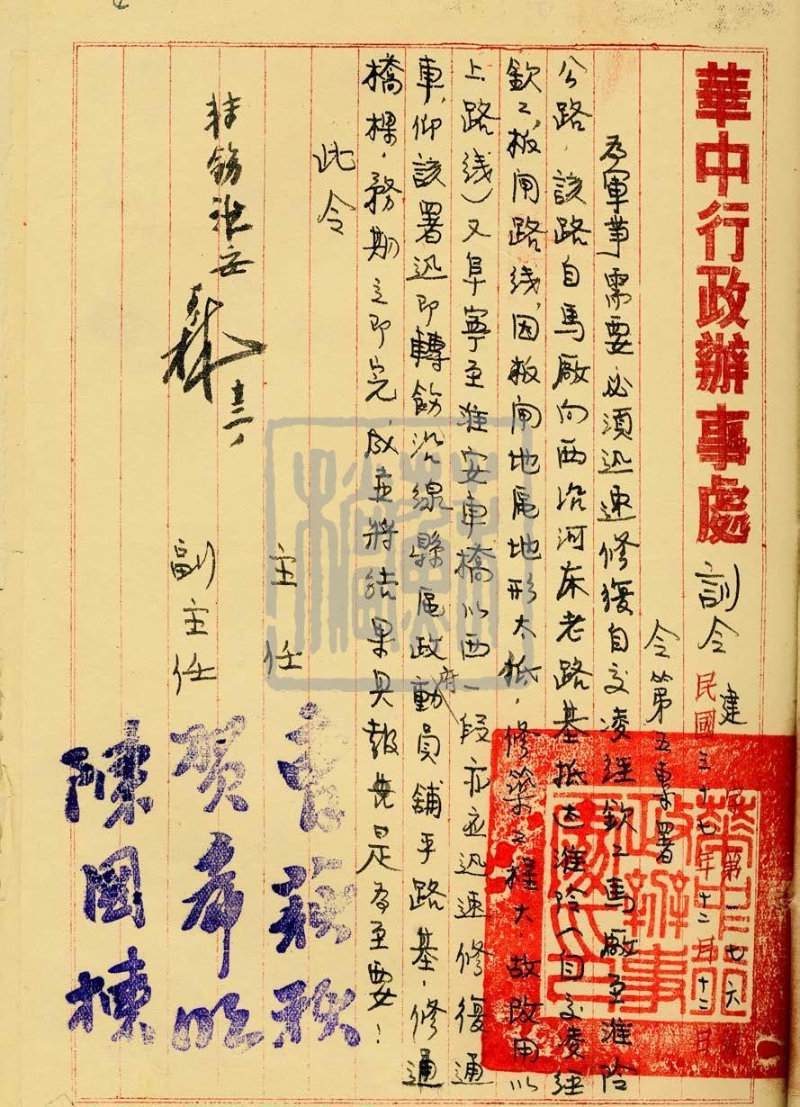 華中行政辦事處
訓令 建字第一七六號
民國三十七年十二月十二日
令第五專署
為軍事需要必須迅速修復自交凌經欽工馬廠至淮陰
公路，該路自馬廠向西沿河床老路基抵达淮陰（自交凌經
欽工，板闸路线，因板闸地尾地形太抵，修築工程大，故改用以
上路线）又阜寧至淮安車橋以西一段亦应迅速修復通
車，仰該署迅即轉飭沿線縣區政府動員舖平路基，修通
橋樑，務期立即完成並將結果具報
是為至要！
此令
主任 曹荻秋
副主任 賀希明
陳國棟
轉飭淮安